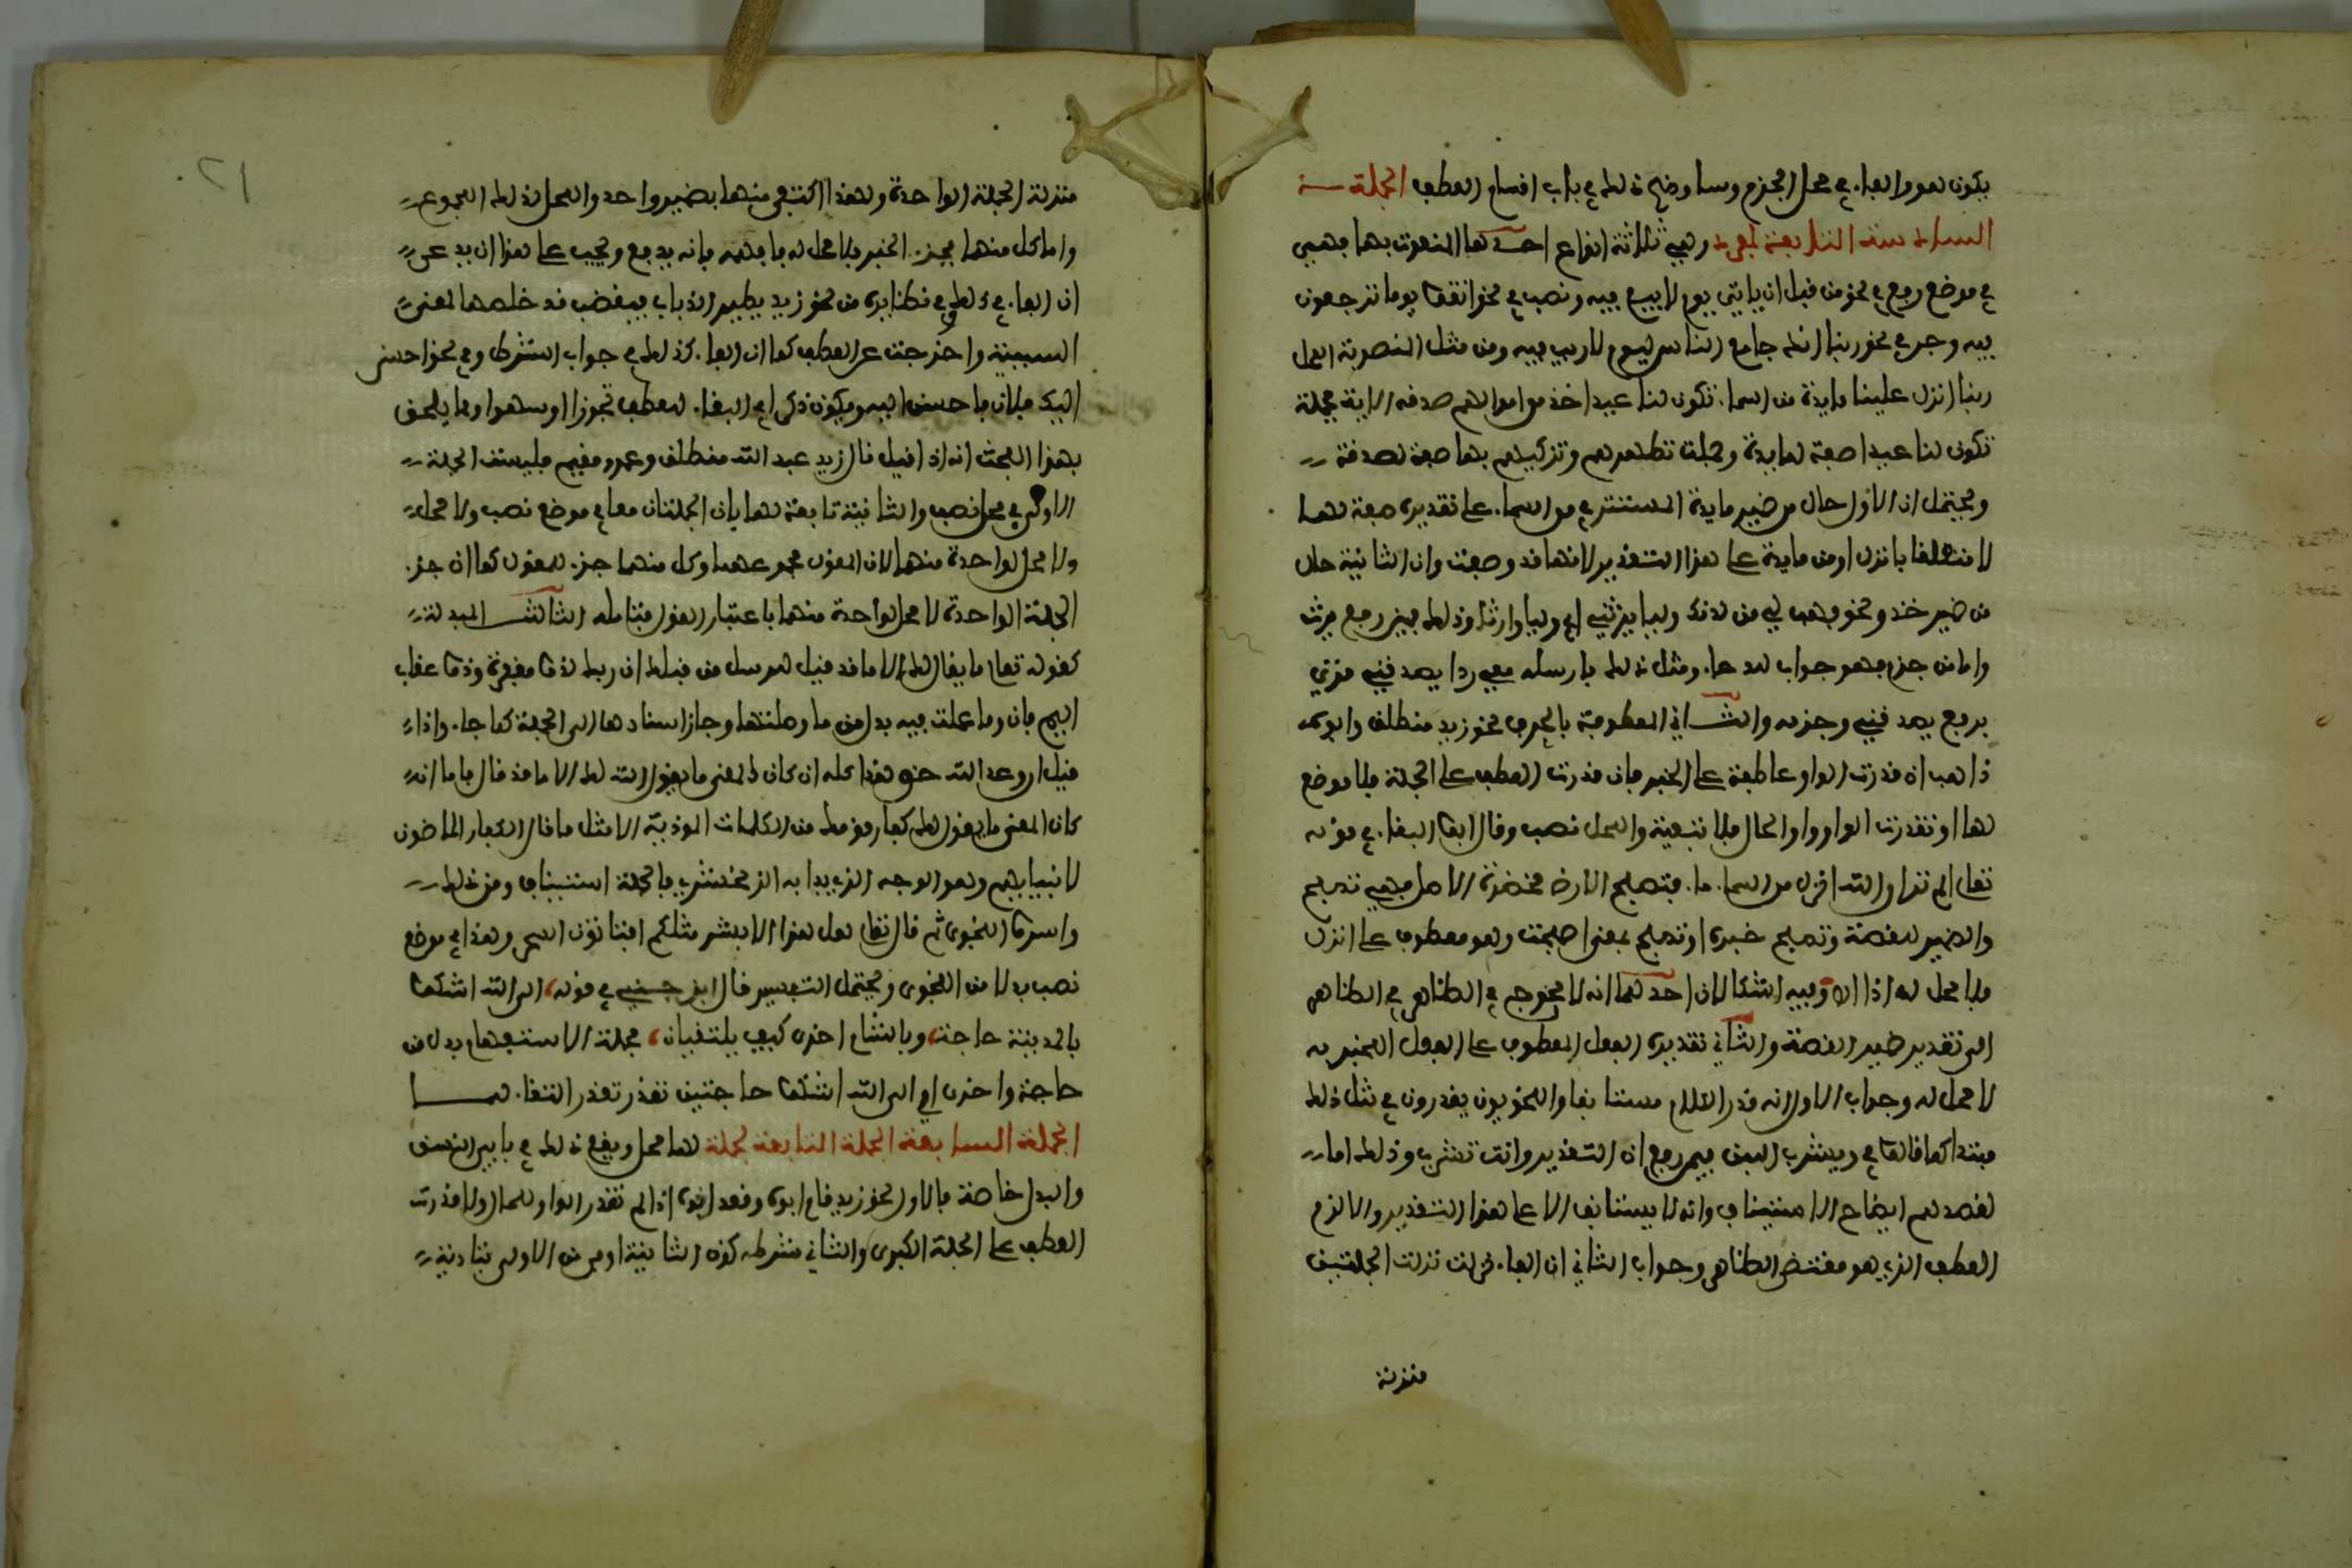 يكون هو والفاء في محل الجزم وسأوضح ذلك في باب اقسام العطف الجملة
السادسة التابعة لمفرد وهي ثلاثة انواع احدها المنعوت بها فهي
في موضع رفع في نحو من قبل ان ياتي يوم لا بيع فيه ونصب في نحو اتقوا يوما ترجعون
فيه وجر في نحو ربنا انك جامع الناس ليوم لا ريب فيه ومن مثل المنصوبة المحل
ربنا انزل علينا مايدة من السماء تكون لنا عيدا خذ من اموالهم صدقة الاية فجملة
تكون لنا عيدا صفة لمايدة وجملة تطهرهم وتزكيهم بها صفة لصدقة
ويحتمل ان الاول حال من ضمير مايدة المستتر في من السماء على تقديره صفة لها
لا متعلقا بانزل او من مايدة على هذا التقدير لانها قد وصفت وان الثانية حال
من ضمير خذ ونحو فهب لي من لدنك وليا يرثني اي وليا وارثا وذلك فيمن رفع يرث
واما من جزم فهو جواب للدعاء ومثل ذلك فارسله معي ردا يصدقني قرئ
برفع يصدقني وجزمه والثاني المعطوفة بالحرف نحو زيد منطلق وابوه
ذاهب ان قدرت الواو عاطفة على الخبر فان قدرت العطف على الجملة فلا موضع
لها او تقدرت الواو واو الحال فلا تبعية والمحل نصب وقال ابو البقاء في قوله
تعالى الم تر ان الله انزل من السماء ماء فتصبح الارض مخضرة الاصل فهي تصبح
والضمير للقصة وتصبح خبره او تصبح بمعنى اصبحت وهو معطوف على انزل
فلا محل له اذا اه وفيه اشكالان احدهما انه لا محوج في الظاهر في الظاهر
الى تقدير ضمير القصة والثاني تقديره الفعل المعطوف على الفعل المخبر به
لا محل له وجواب الاول انه قدر الكلام مستانفا والنحويون يقدرون في مثل ذلك
مبتدا كما قالوا في ويشرب اللبن فيمن رفع ان التقدير وانت تشرب وذلك اما
لقصدهم ايضاح الاستيناف وانه لا يستانف الا على هذا التقدير والا لزم
العطف الذي هو مقتضى الظاهر وجواب الثاني ان الفاء نزلت الجملتين
منزلة
منزلة الجملة الواحدة ولهذا اكتفي منهما بضمير واحد والمحل لذلك المجموع
واما كل منهما فجزء الخبر فلا محل له فافهمه فانه بديع ويجب على هذا ان يدعى
ان الفاء في ذلك وفي نظائره من نحو زيد يطير الذباب فيغضب قد خلصها لمعنى
السببية واخرجت عن العطف كما ان الفاء كذلك في جواب الشرط وفي نحو احسن
اليك فلان فاحسن اليه ويكون ذكر ابي البقاء للعطف تجوزا او سهوا ومما يلحق
بهذا البحث انه اذا قيل قال زيد عبد الله منطلق وعمرو مقيم فليست الجملة
الاولى في محل نصب والثانية تابعة لها بل الجملتان معا في موضع نصب ولا محل
ولا محل لواحدة منهما لان المقول مجموعهما وكل منهما جزء للمقول كما ان جزء
الجملة الواحدة لا محل لواحدة منهما باعتبار القول فتامله الثالث المبدلة
كقوله تعالى ما يقال لك الا ما قد قيل للرسل من قبلك ان ربك لذو مغفرة وذو عقاب
اليم فان وما عملت فيه بدل من ما وصلتها وجاز اسنادها الى الجملة كما جاء واذا
قيل ان وعد الله حق هذا كله ان كان المعنى ما يقول الله لك الا ما قد قال فاما ان
كان المعنى ما يقول لك كفار قومك من الكلمات الموذية الا مثل ما قال الكفار الماضون
لانبيايهم وهو الوجه الذي بدا به الزمخشري فالجملة استيناف ومن ذلك
واسروا النجوى ثم قال تعالى هل هذا الا بشر مثلكم افتاتون السحر وهذا في موضع
نصب بدلا من النجوى ويحتمل التفسير قال ابن جني في قوله، الى الله اشكو
بالمدينة حاجة، وبالشام اخرى كيف يلتقيان، فجملة الاستفهام بدل من
حاجة واخرى اي الى الله اشكو حاجتين تعذر التقاءهما
الجملة السابعة الجملة التابعة لجملة لها محل ويقع ذلك في بابي النسق
والبدل خاصة فالاول نحو زيد قام ابوه وقعد اخوه اذا لم تقدر الواو للحال ولا قدرت
العطف على الجملة الكبرى والثاني شرطه كون الثانية اوفى من الاولى بتادية